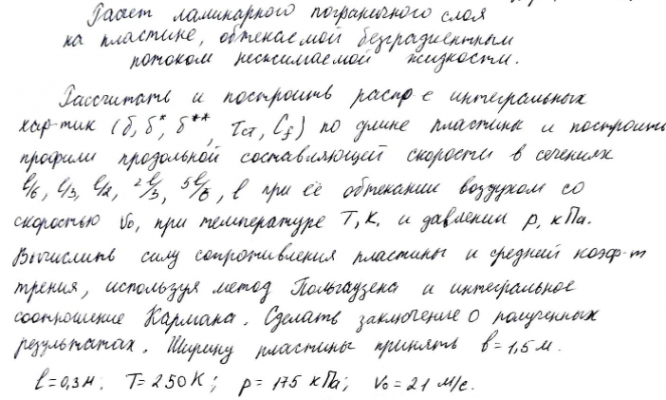 Расчет ламинарного пограничного слоя
на пластине, обтекаемой безградиентным
потоком несжимаемой жидкости.
Рассчитать и построить распр-е интегральных
хар-тик (δ, δ*, δ**, τст, Cf) по длине пластины и построить
профили продольной составляющей скорости в сечениях
l/6, l/3, l/2, 2l/3, 5l/6, l при её обтекании воздухом со
скоростью v₀, при температуре T, К. и давлении p, кПа.
Вычислить силу сопротивления пластины и средний коэф-т
трения, используя метод Польгаузена и интегральное
соотношение Кармана. Сделать заключение о полученных
результатах. Ширину пластины принять b=1,5 м.
l=0,3м; T=250К; p=175 кПа; v₀=21 м/с.